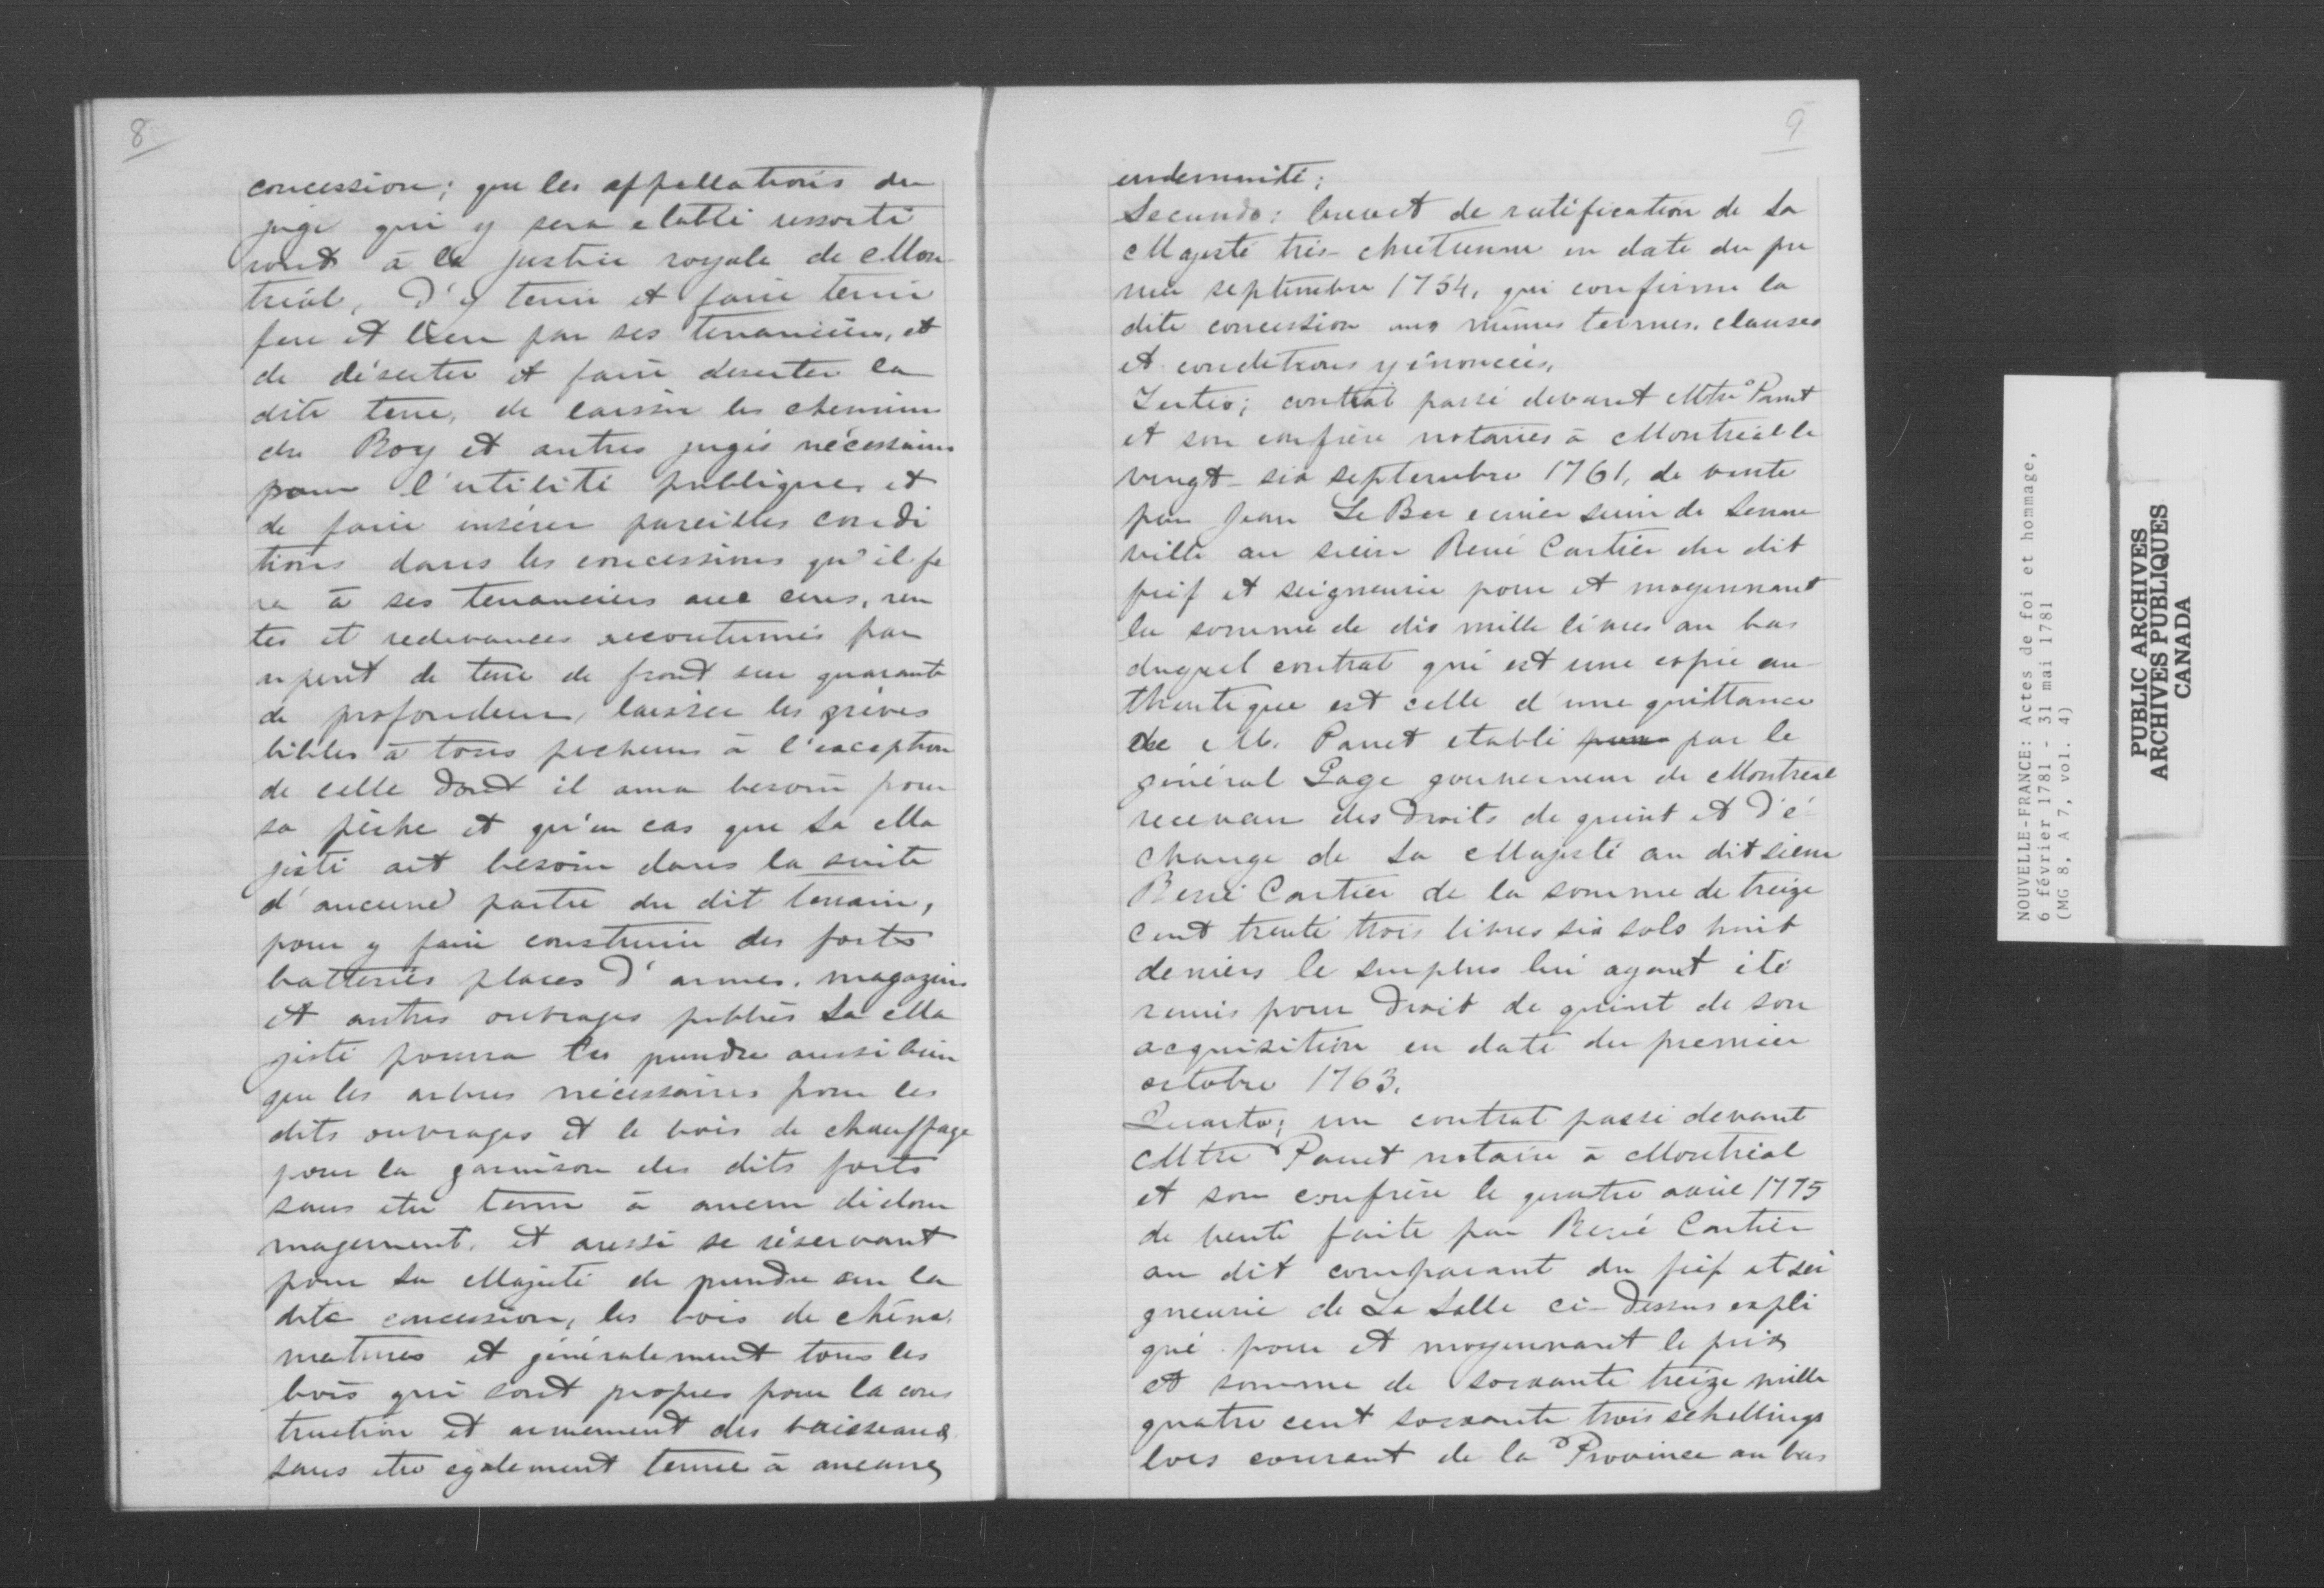 8
concession; que les appellations du
juge qui y sera etabli ressorti
ront à la justice royale de Mon
tréal, D'y tenir et faire tenir
feu et lieu par ses tenanciers, et
de déserter et faire deserter la
dite terre, de laisser les chemins
du Roy et autres jugés nécessaires
pour l'utilité publique, et
de faire insérer pareilles condi
tions dans les concessions qu'il fe
ra à ses tenanciers aux cens, ren
tes et redevances accoutumés par
arpent de terre de front sur quarante
de profondeur, laisser les grèves
libbles à tous pecheurs à l'exception
de celle dont il aura besoin pour
sa pêche et qu'en cas que Sa Ma
jesté ait besoin dans la suite
d'aucune partie du dit terrain,
pour y faire construire des forts
batteries places d'armes, magazins
et autres ouvrages publics Sa Ma
jesté pourra les prendre aussi bien
que les arbres nécessaires pour les
dits ouvrages et le bois de chauffage
pour la garnison des dits forts
sans etre tenu à aucun dédom
magement, et aussi se réservant
pour Sa Majesté de prendre sur la
dite concession, les bois de chêne,
matures et généralement tous les
bois qui sont propres pour la cons
truction et armement des vaisseaux
sans etre également tenue à aucune
9
indemnité;
Secundo: brevet de ratification de Sa
Majesté très-chretienne en date du pre
mier septembre 1754, qui confirme la
dite concession aux mêmes termes, clauses
et conditions y énoncées,
Tertio; contrat passé devant Mtre Panet
et son confrère notaires à Montréal le
vingt-six septembre 1761, de vente
par Jean Le Ber ecuier sieur de Senne
ville au sieur René Cartier du dit
fief et seigneurie pour et moyennant
la somme de dix mille livres au bas
duquel contrat qui est une copie au
thentique est celle d'une quittance
de M. Panet etabli par le
général Gage gouverneur de Montreal
receveur des droits de quint et d'é
change de Sa Majesté au dit sieur
René Cartier de la somme de treize
cent trente trois livres six sols huit
deniers le surplus lui ayant été
remis pour droit de quint de son
acquisition en date du premier
octobre 1763.
Quarto; un contrat passé devant
Mtre Panet notaire à Montréal
et son confrère le quatre avril 1775
de vente faite par René Cartier
au dit comparant du fief et sei
gneurie de La Salle ci-dessus expli
qué pour et moyennant le prix
et somme de soixante treize mille
quatre cent soixante trois schellings
lors courant de la Province au bas
NOUVELLE-FRANCE: Actes de foi et hommage,
6 février 1781 - 31 mai 1781
(MG 8, A 7, vol. 4)
PUBLIC ARCHIVES
ARCHIVES PUBLIQUES
CANADA